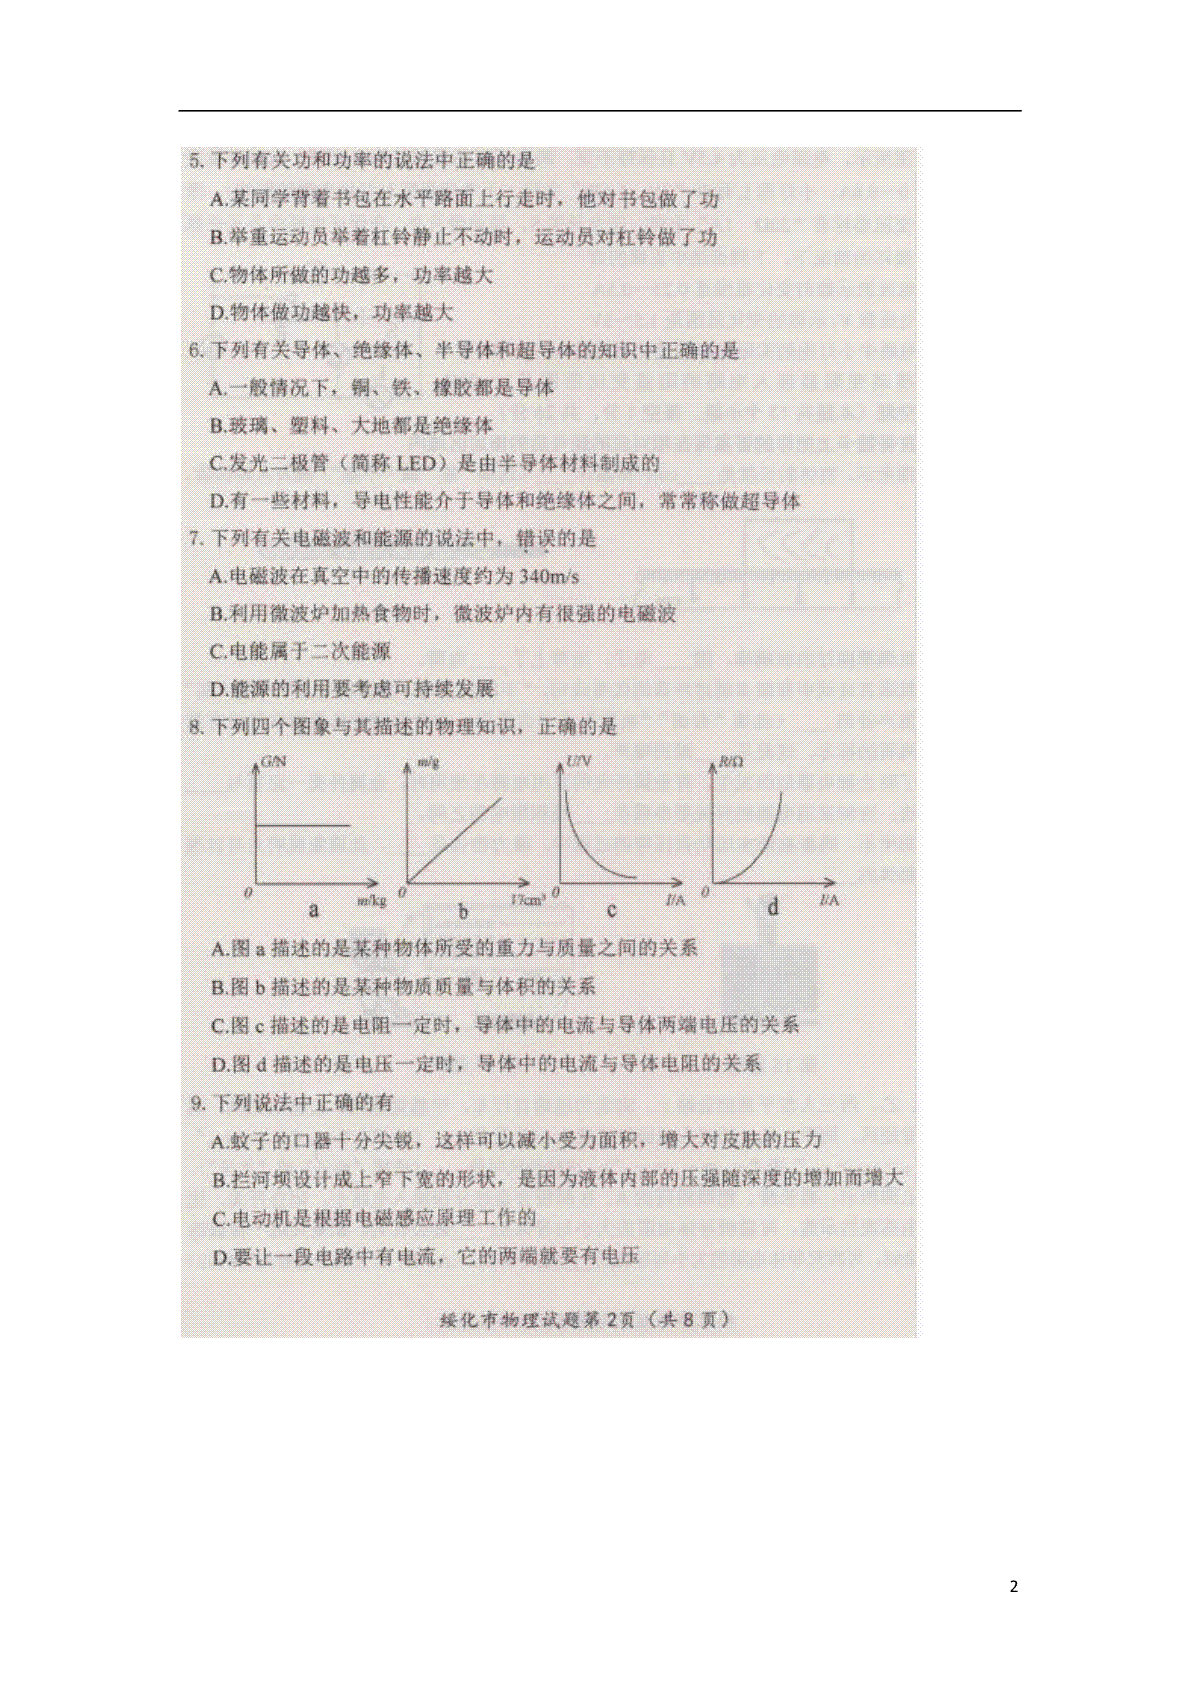 5. 下列有关功和功率的说法中正确的是
A.某同学背着书包在水平路面上行走时，他对书包做了功
B.举重运动员举着杠铃静止不动时，运动员对杠铃做了功
C.物体所做的功越多，功率越大
D.物体做功越快，功率越大
6. 下列有关导体、绝缘体、半导体和超导体的知识中正确的是
A.一般情况下，铜、铁、橡胶都是导体
B.玻璃、塑料、大地都是绝缘体
C.发光二极管（简称 LED）是由半导体材料制成的
D.有一些材料，导电性能介于导体和绝缘体之间，常常称做超导体
7. 下列有关电磁波和能源的说法中，错误的是
A.电磁波在真空中的传播速度约为 340m/s
B.利用微波炉加热食物时，微波炉内有很强的电磁波
C.电能属于二次能源
D.能源的利用要考虑可持续发展
8. 下列四个图象与其描述的物理知识，正确的是
G/N m/g U/V R/Ω
0 m/kg 0 V/cm³ 0 I/A 0 I/A
a b c d
A.图 a 描述的是某种物体所受的重力与质量之间的关系
B.图 b 描述的是某种物质质量与体积的关系
C.图 c 描述的是电阻一定时，导体中的电流与导体两端电压的关系
D.图 d 描述的是电压一定时，导体中的电流与导体电阻的关系
9. 下列说法中正确的有
A.蚊子的口器十分尖锐，这样可以减小受力面积，增大对皮肤的压力
B.拦河坝设计成上窄下宽的形状，是因为液体内部的压强随深度的增加而增大
C.电动机是根据电磁感应原理工作的
D.要让一段电路中有电流，它的两端就要有电压
绥化市物理试题第 2页（共 8 页）
2